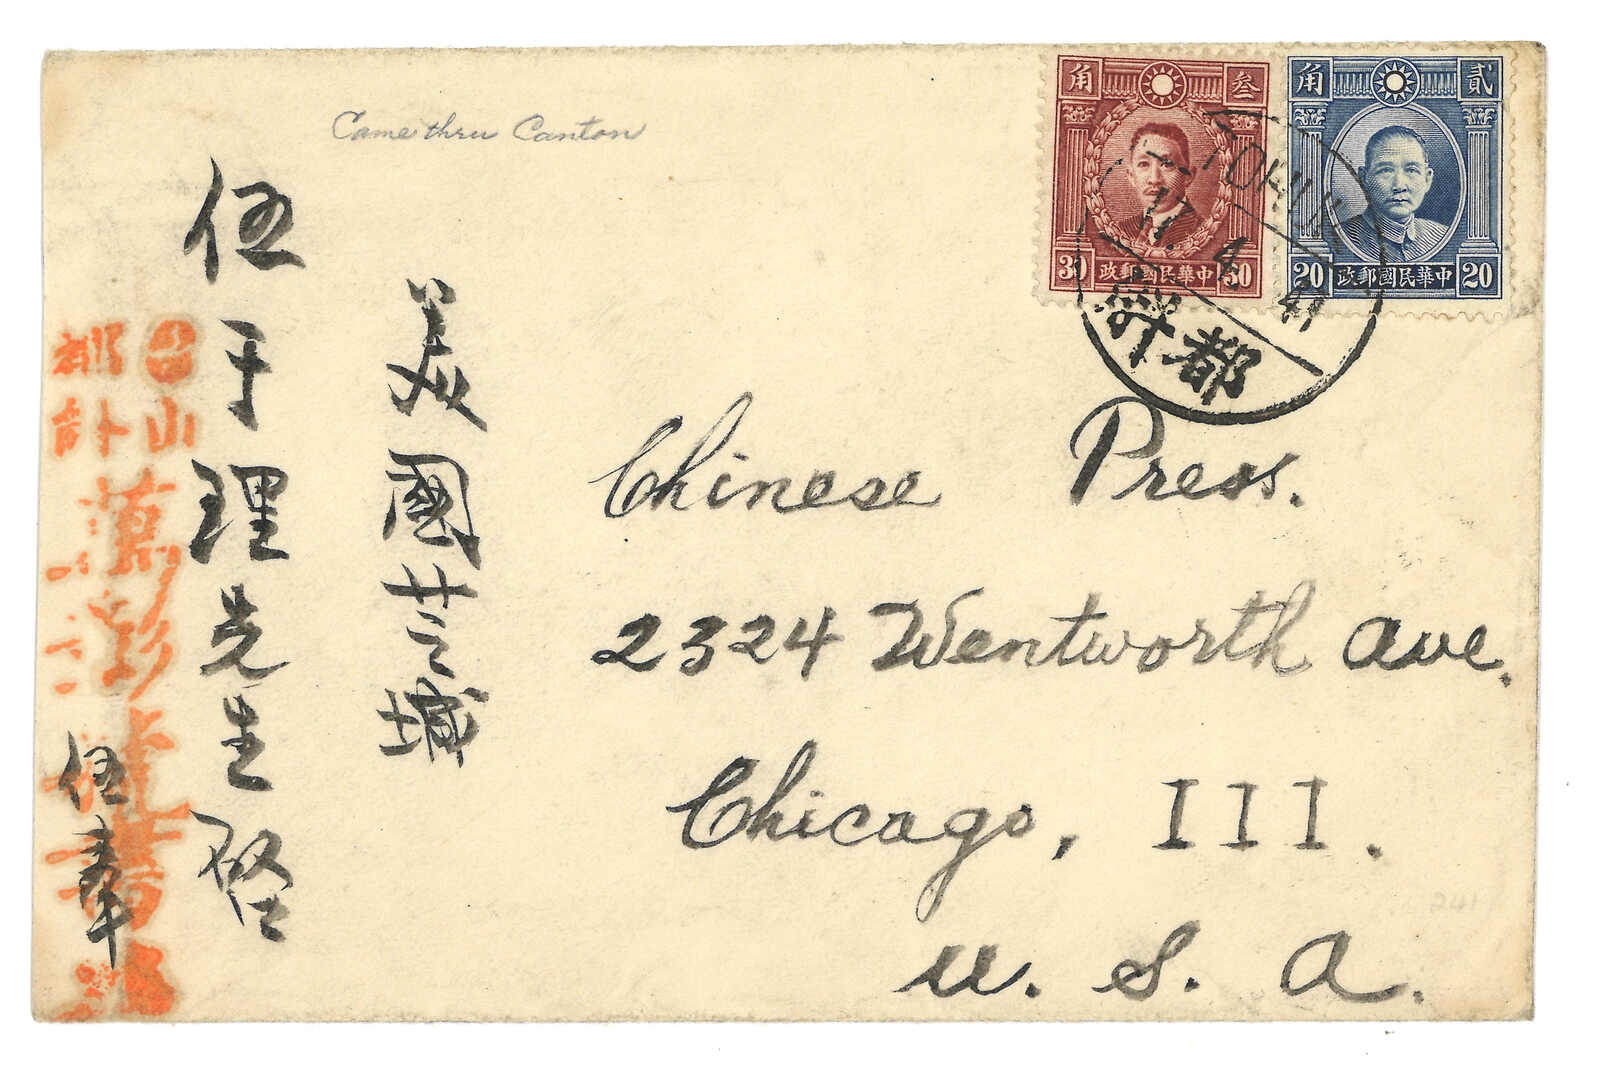 Came thru Canton
角 叁
30 政郵國民華中 30
角 貳
20 政郵國民華中 20
TOHU
17. 4. 41
斗都
Chinese Press.
2324 Wentworth Ave.
Chicago, III.
U. S. A.
美國芝城
伍于理先生啓
台山
都斗
萬彰
伍
241